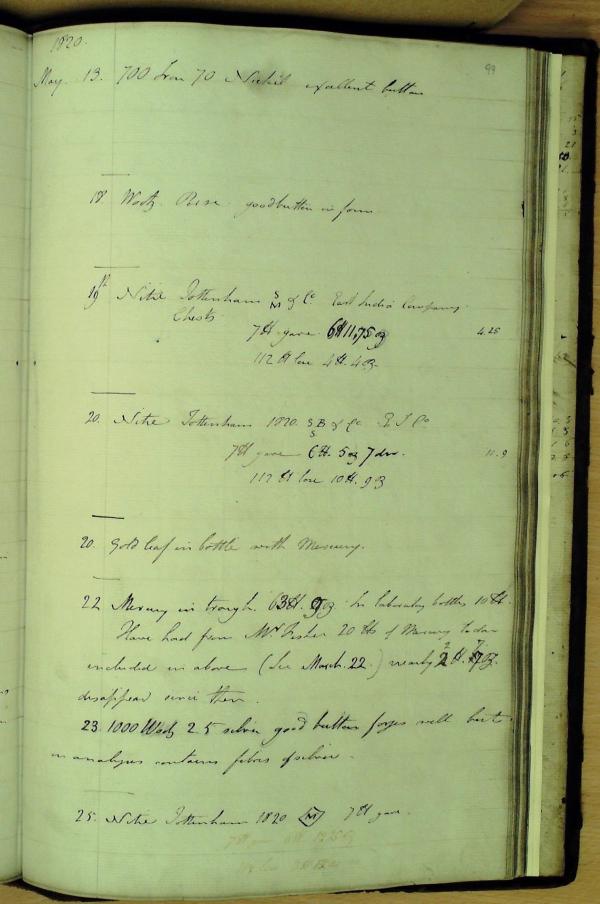 1820.
99
May. 13. 700 Iron 70 Nickel excellent button
18 Wootz Rose good button in form
19th Nitre Tottenham S M & Co East India Company
Chests
7 ℔ gave 6 ℔ 11,75 oz 4.25
112 ℔ lose 4 ℔. 4 oz.
20. Nitre Tottenham 1820. S B S & Co. E I Co
7 ℔ gave 6 ℔. 5 oz 7 drs. 11.9
112 ℔ lose 10 ℔. 9 oz
20. Gold leaf in bottle with Mercury.
22 Mercury in trough. 63 ℔. 9 oz. In laboratory bottles 10 ℔.
Have had from Mr Fisher 20 ℔s of Mercury to day
included in above (See March. 22.) nearly 2 ℔. 7 oz.
disappear since then.
23. 1000 Wootz 2.5 silver good button forges well but
on analysis contains fibres of silver.
25. Nitre Tottenham 1820 M 7 ℔ gave.